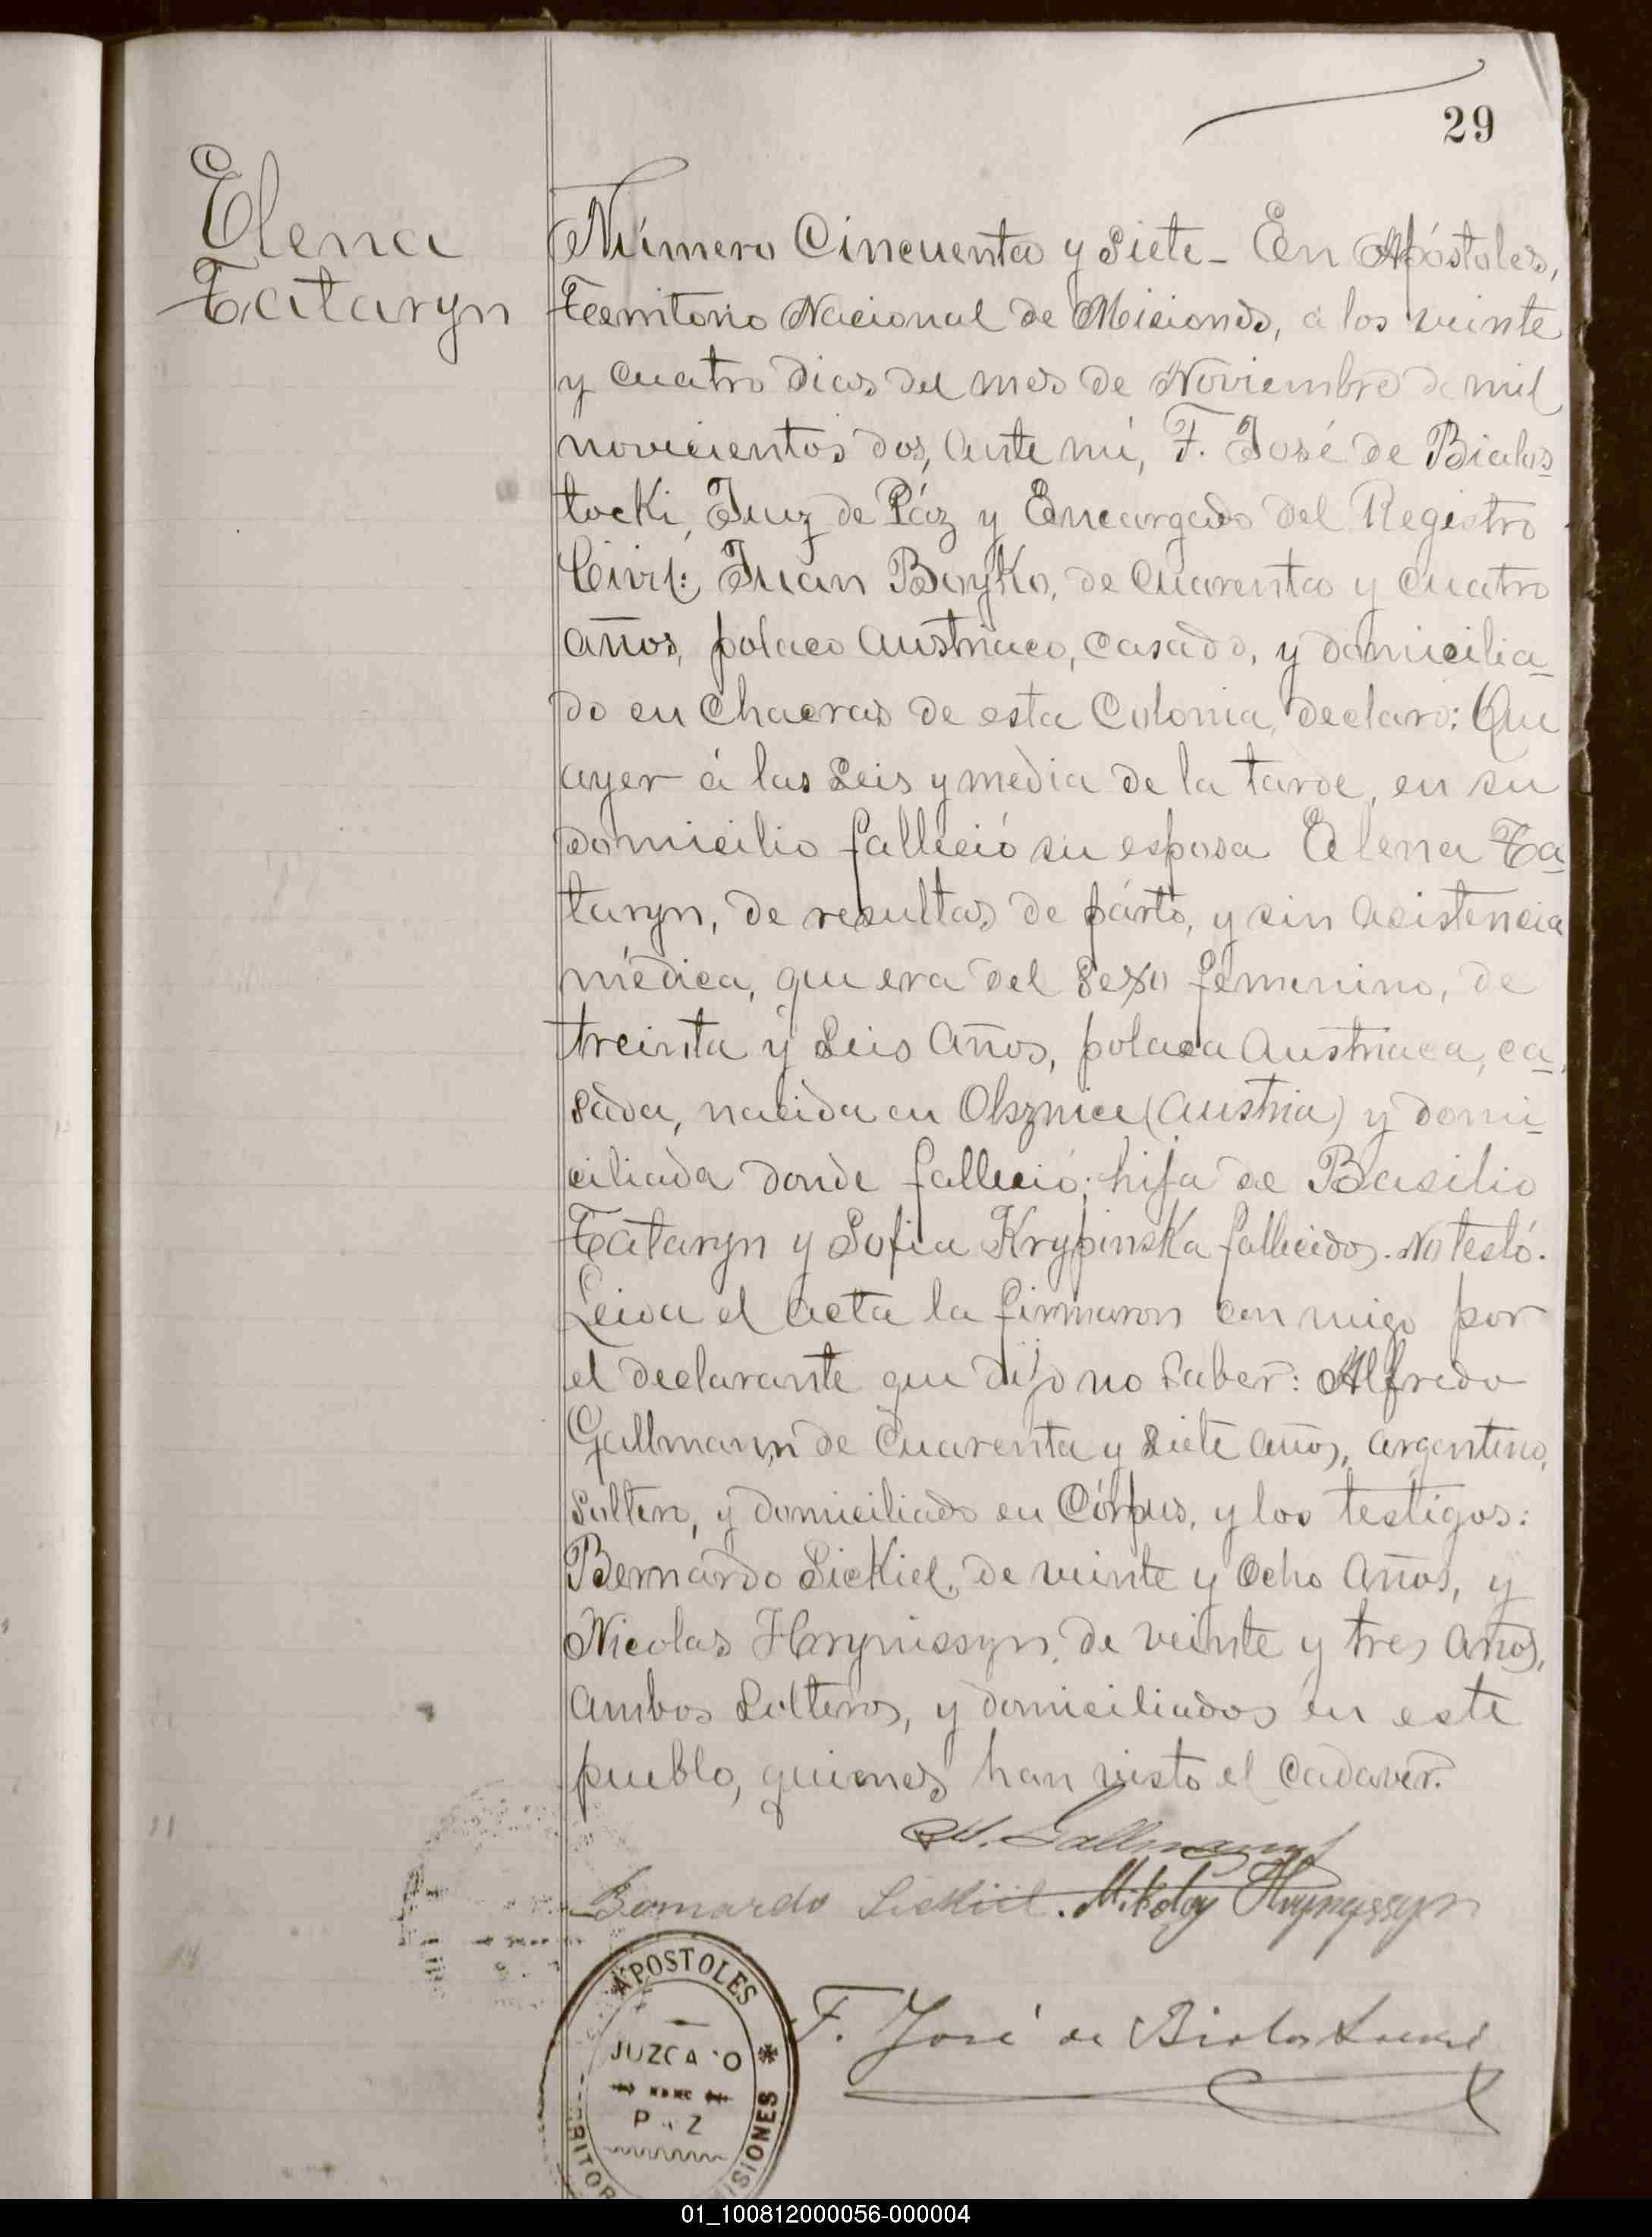 29
Elena
Tataryn
Número Cincuenta y Siete - En Apóstoles,
Territorio Nacional de Misiones, á los veinte
y cuatro dias del mes de Noviembre de mil
novecientos dos, ante mí, F. José de Bialos-
tocki, Juez de Páz y Encargado del Registro
Civil: Juan Boyko, de cuarenta y cuatro
años, polaco austriaco, casado, y domicilia-
do en Chacras de esta Colonia, declaró: Que
ayer á las seis y media de la tarde, en su
domicilio falleció su esposa Elena Ta-
taryn, de resultas de párto, y sin asistencia
médica, que era del sexo femenino, de
treinta y seis años, polaca austriaca, ca-
sada, nacida en Olsznice (Austria) y domi-
ciliada donde falleció; hija de Basilio
Tataryn y Sofia Krypinska fallecidos. No testó.
Leida el acta la firmaron con migo por
el declarante que dijo no saber: Alfredo
Gallmann de cuarenta y siete años, argentino,
soltero, y domiciliado en Córpus, y los testigos:
Bernardo Sickiel, de veinte y ocho años, y
Nicolas Hrynissyn, de veinte y tres años,
ambos solteros, y domiciliados en este
pueblo, quienes han visto el cadaver.
A. Gallmann
Bernardo Sickiel. Mikolay Hrynyssyn
F. José de Bialostocki
APOSTOLES
JUZGADO
PAZ
01_100812000056-000004